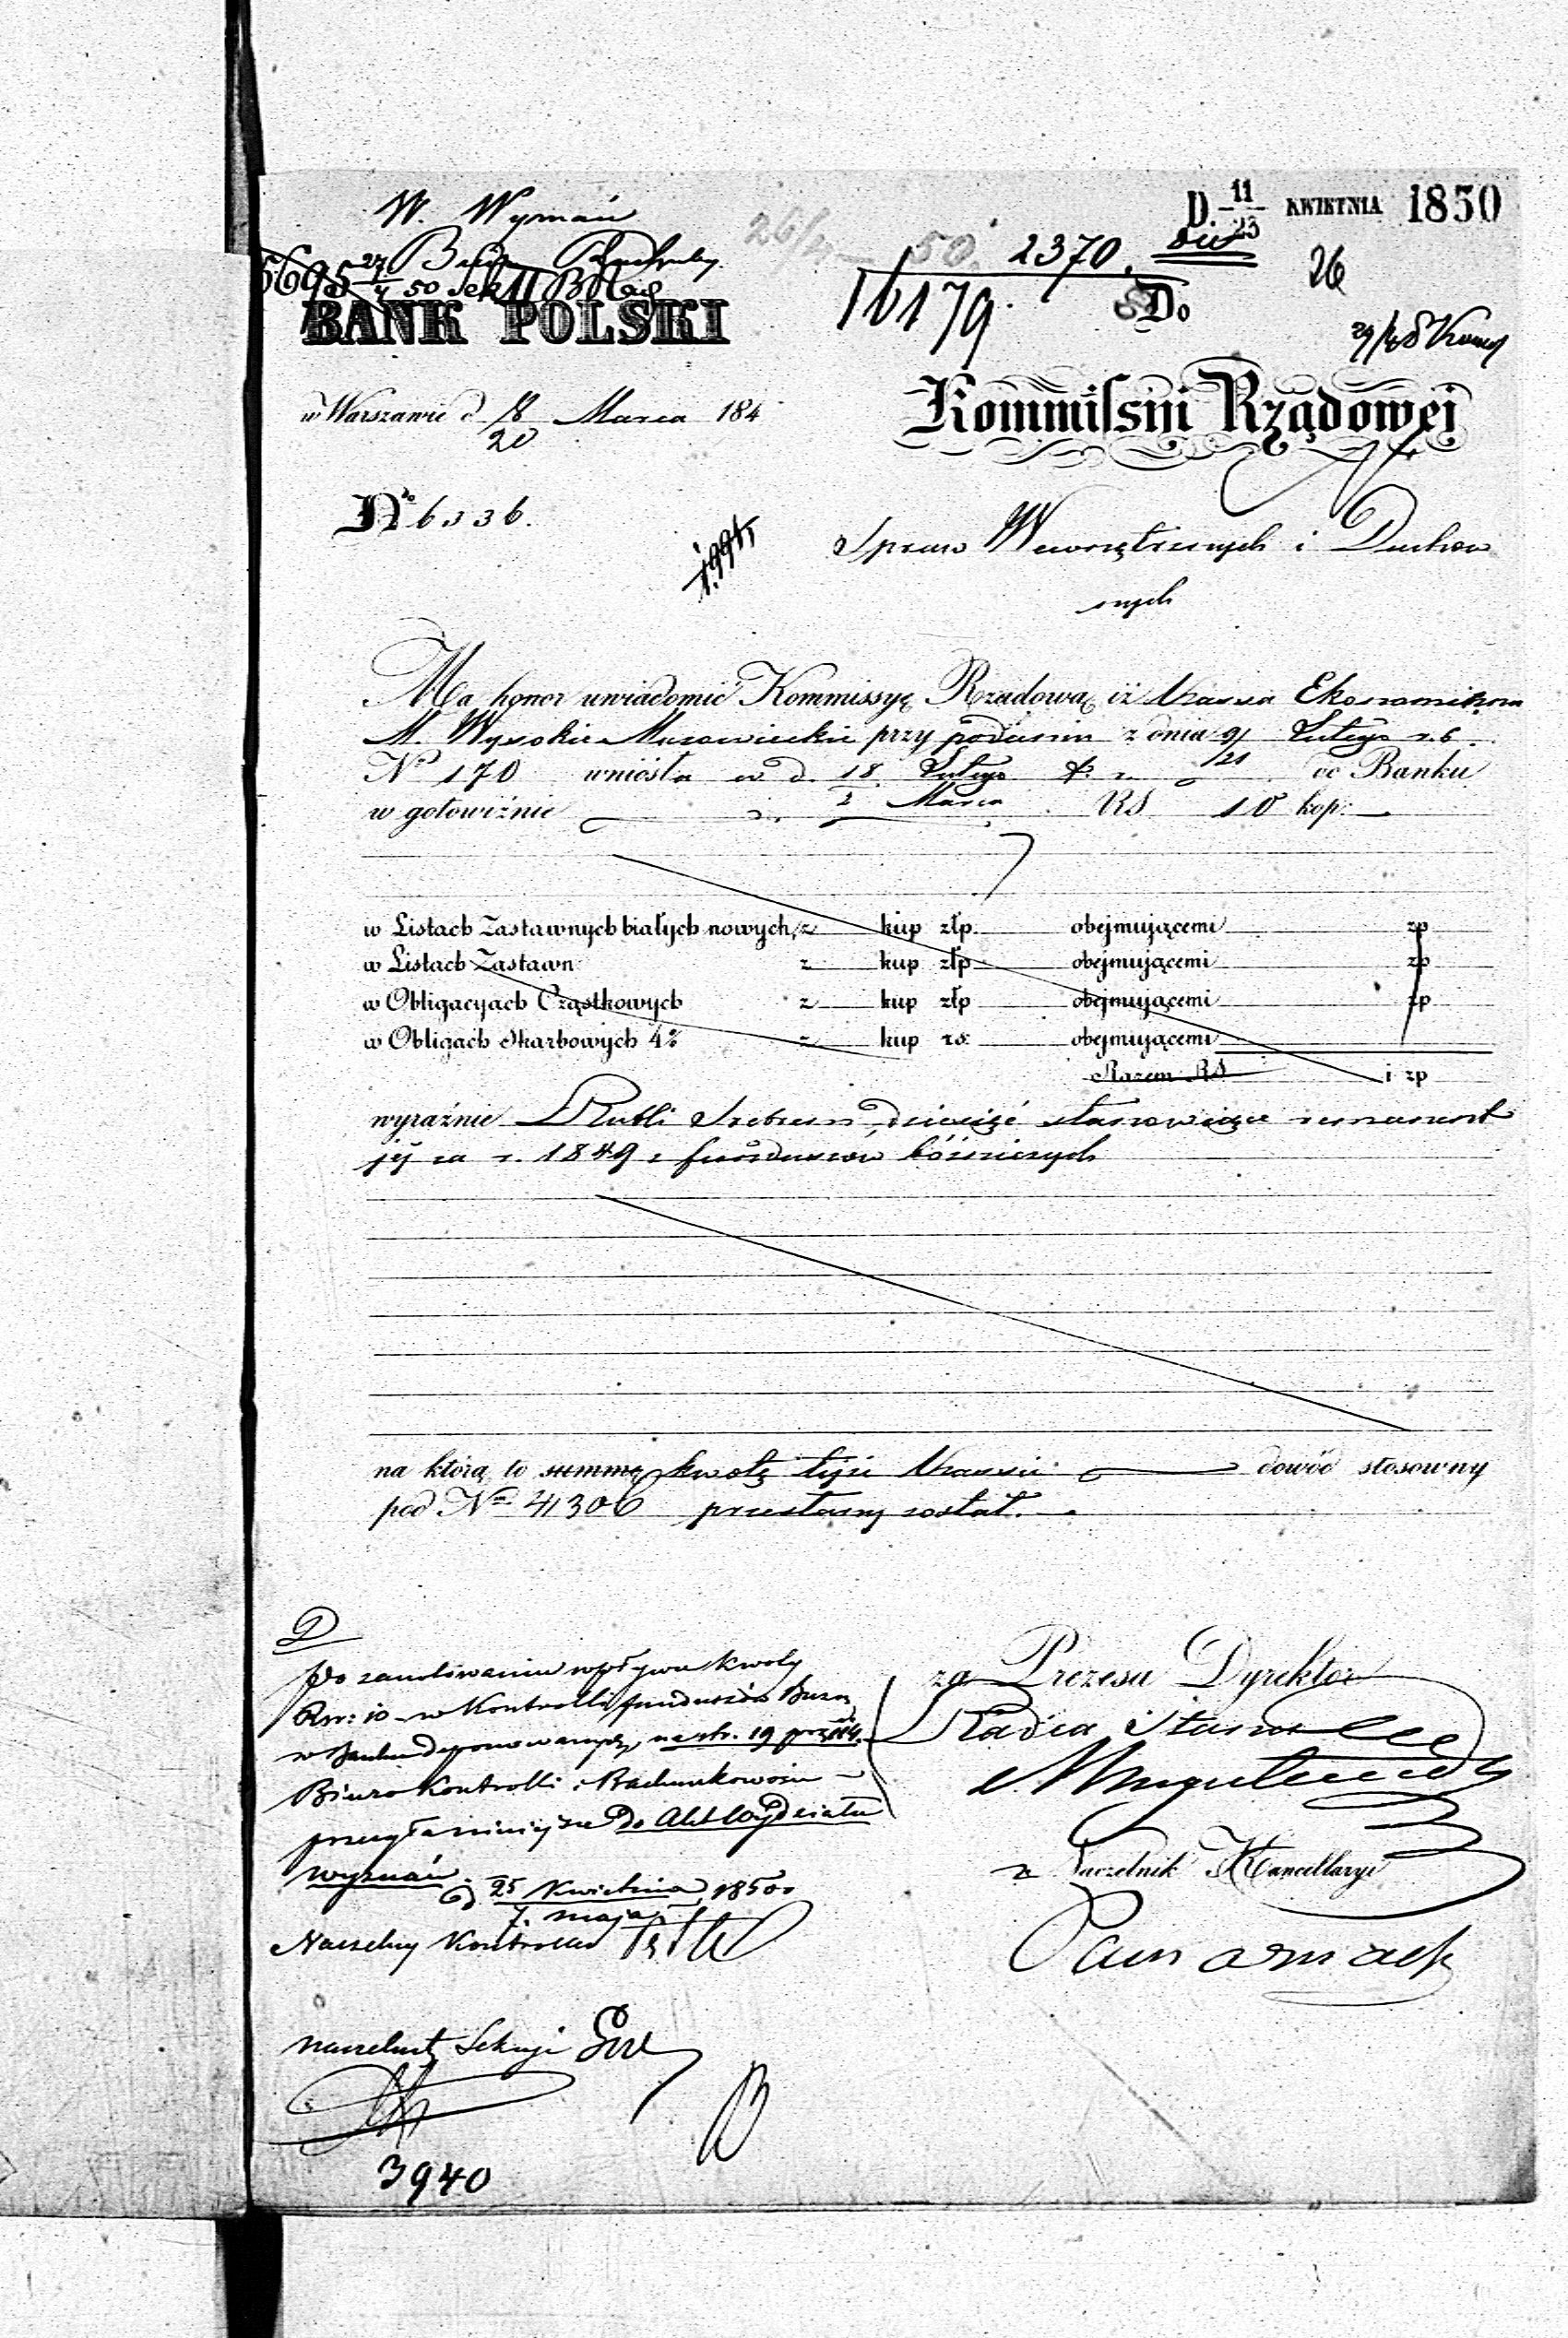 W. Wyznań
D. 11/23 KWIETNIA 1850
5695 27/4 50 Sek II
50. 2370.
16179.
26
BANK POLSKI
Do
w Warszawie d. 8/20 Marca 184
Kommissyi Rządowej
No 6336.
Spraw Wewnętrznych i Duchow
nych
Ma honor uwiadomić Kommissyę Rządową iż Kassa Ekonomiczna
M. Wysokie Mazowieckie przy podaniu z dnia 9/21 Lutego r. b.
No 170 wniosła w d. 18 Lutego / 2 Marca t. r. do Banku
w gotowiźnie RS 10 kop:
w Listach Zastawnych białych nowych, z kup złp. obejmującemi zp
w Listach Zastawn z kup złp obejmującemi zp
w Obligacyach Cząstkowych z kup złp obejmującemi zp
w Obligach Skarbowych 4% z kup rs: obejmującemi
Razem RS i zp
wyraźnie Rubli Srebrem dziesięć stanowiące remanent
jej za r. 1849 z funduszów bóżniczych
na którą to summę kwotę tejże Kassie dowód stosowny
pod Nm 41306 przesłany został.
D
Po zanotowaniu wpływu kwoty
Rsr: 10 w Kontrolli funduszów Bużn
w Banku deponowanych, na str. 19 poz 114.
Biuro Kontrolli i Rachunkowości
przesyła niniejsze Do Akt Wydziału
wyznań.
d 25 Kwietnia / 7. maja 1850
Naczelny Kontroler
za Prezesa Dyrektor
Radca Stanu
z Naczelnik Kancellaryi
Naczelnik Sekcyi
3940